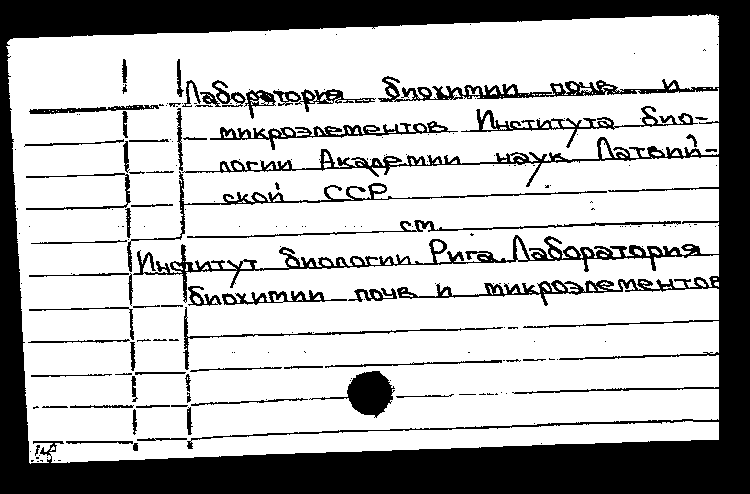 Лаборатория биохимии почв и
микроэлементов Института био-
логии Академии наук Латвий-
ской ССР.
ст.
Институт биологии. Рига. Лаборатория
биохимии почв и микроэлементов